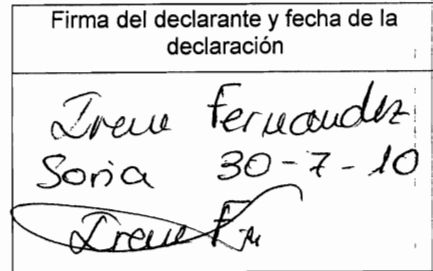 Firma del declarante y fecha de la
declaración
Irene Fernandez
Soria 30-7-10
Irene F